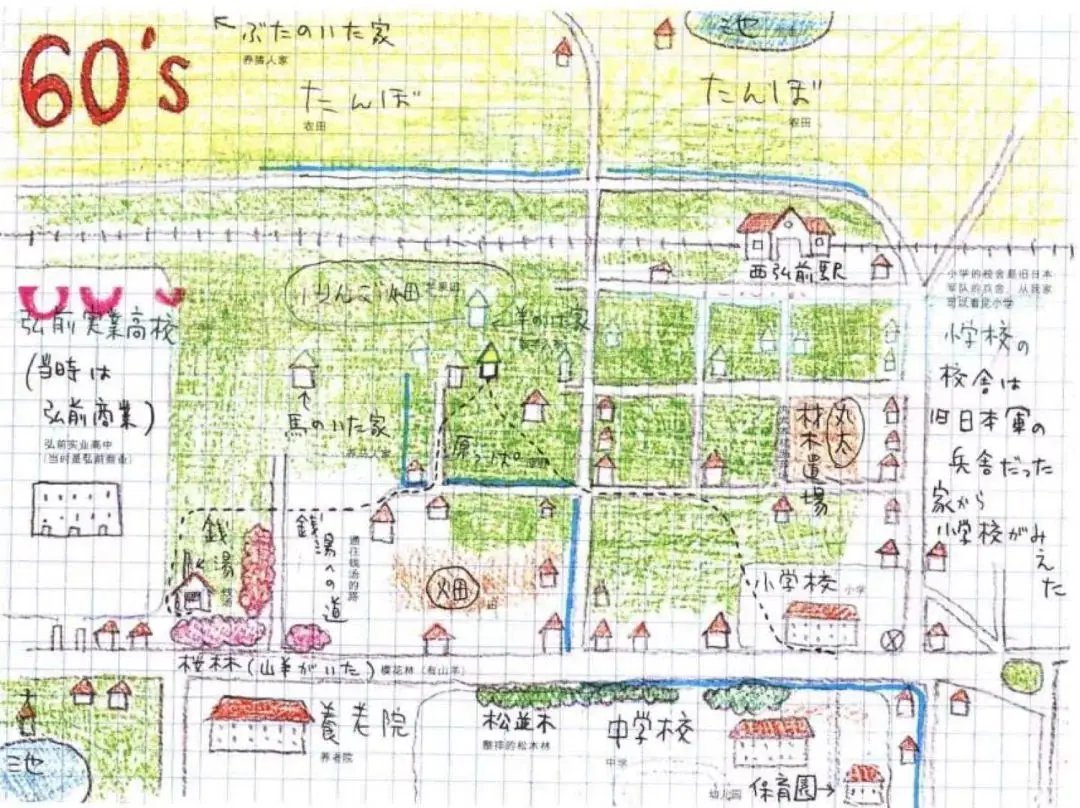 60's
ぶたのいた家
养猪人家
池
たんぼ
农田
たんぼ
农田
西弘前駅
小学的校舍是旧日本
军队的兵舍，从我家
可以看见小学
小学校の
校舎は
旧日本軍の
兵舎だった
家から
小学校がみえた
りんご畑
苹果田
羊のいた家
弘前実業高校
(当時は
弘前商業)
弘前实业高中
(当时是弘前商业)
馬のいた家
养马人家
原っぱ
丸太
材木置場
銭湯
钱汤
銭湯への道
通往钱汤的路
畑
小学校
小学
桜林(山羊がいた)
樱花林(有山羊)
養老院
养老院
松並木
整排的松木林
中学校
中学
池
幼儿园
保育園→